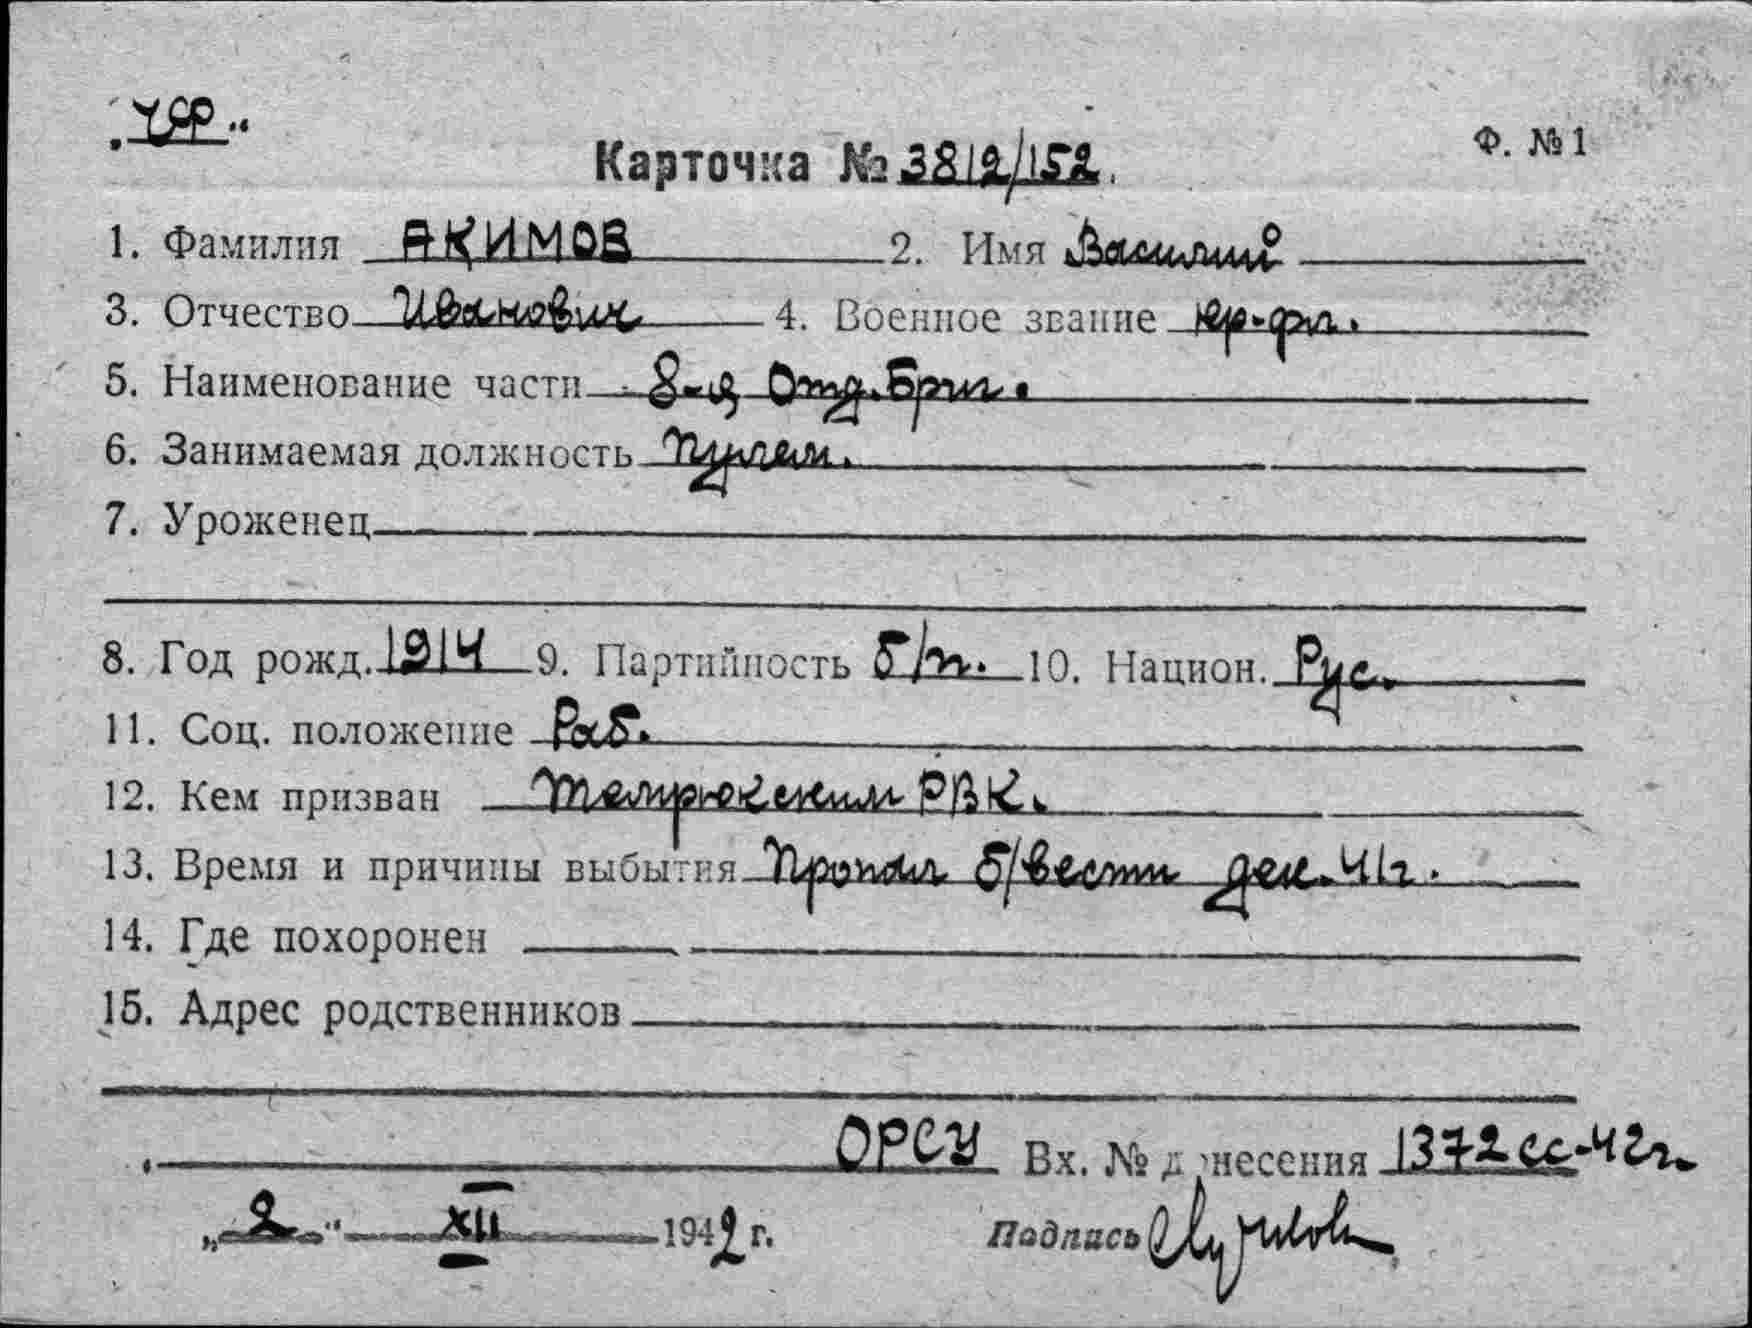 Ф. № 1
Карточка № 3812/152.
1. Фамилия АКИМОВ 2. Имя Василий
3. Отчество Иванович 4. Военное звание кр-фл.
5. Наименование части 8-я Отд. Бриг.
6. Занимаемая должность Пулем.
7. Уроженец
8. Год рожд. 1914 9. Партийность б/п. 10. Национ. Рус.
11. Соц. положение Раб.
12. Кем призван Темрюкским РВК.
13. Время и причины выбытия Пропал б/вести дек. 41г.
14. Где похоронен
15. Адрес родственников
ОРСУ Вх. № донесения 1372 сс-42г.
„2“ XII 1942 г. Подпись